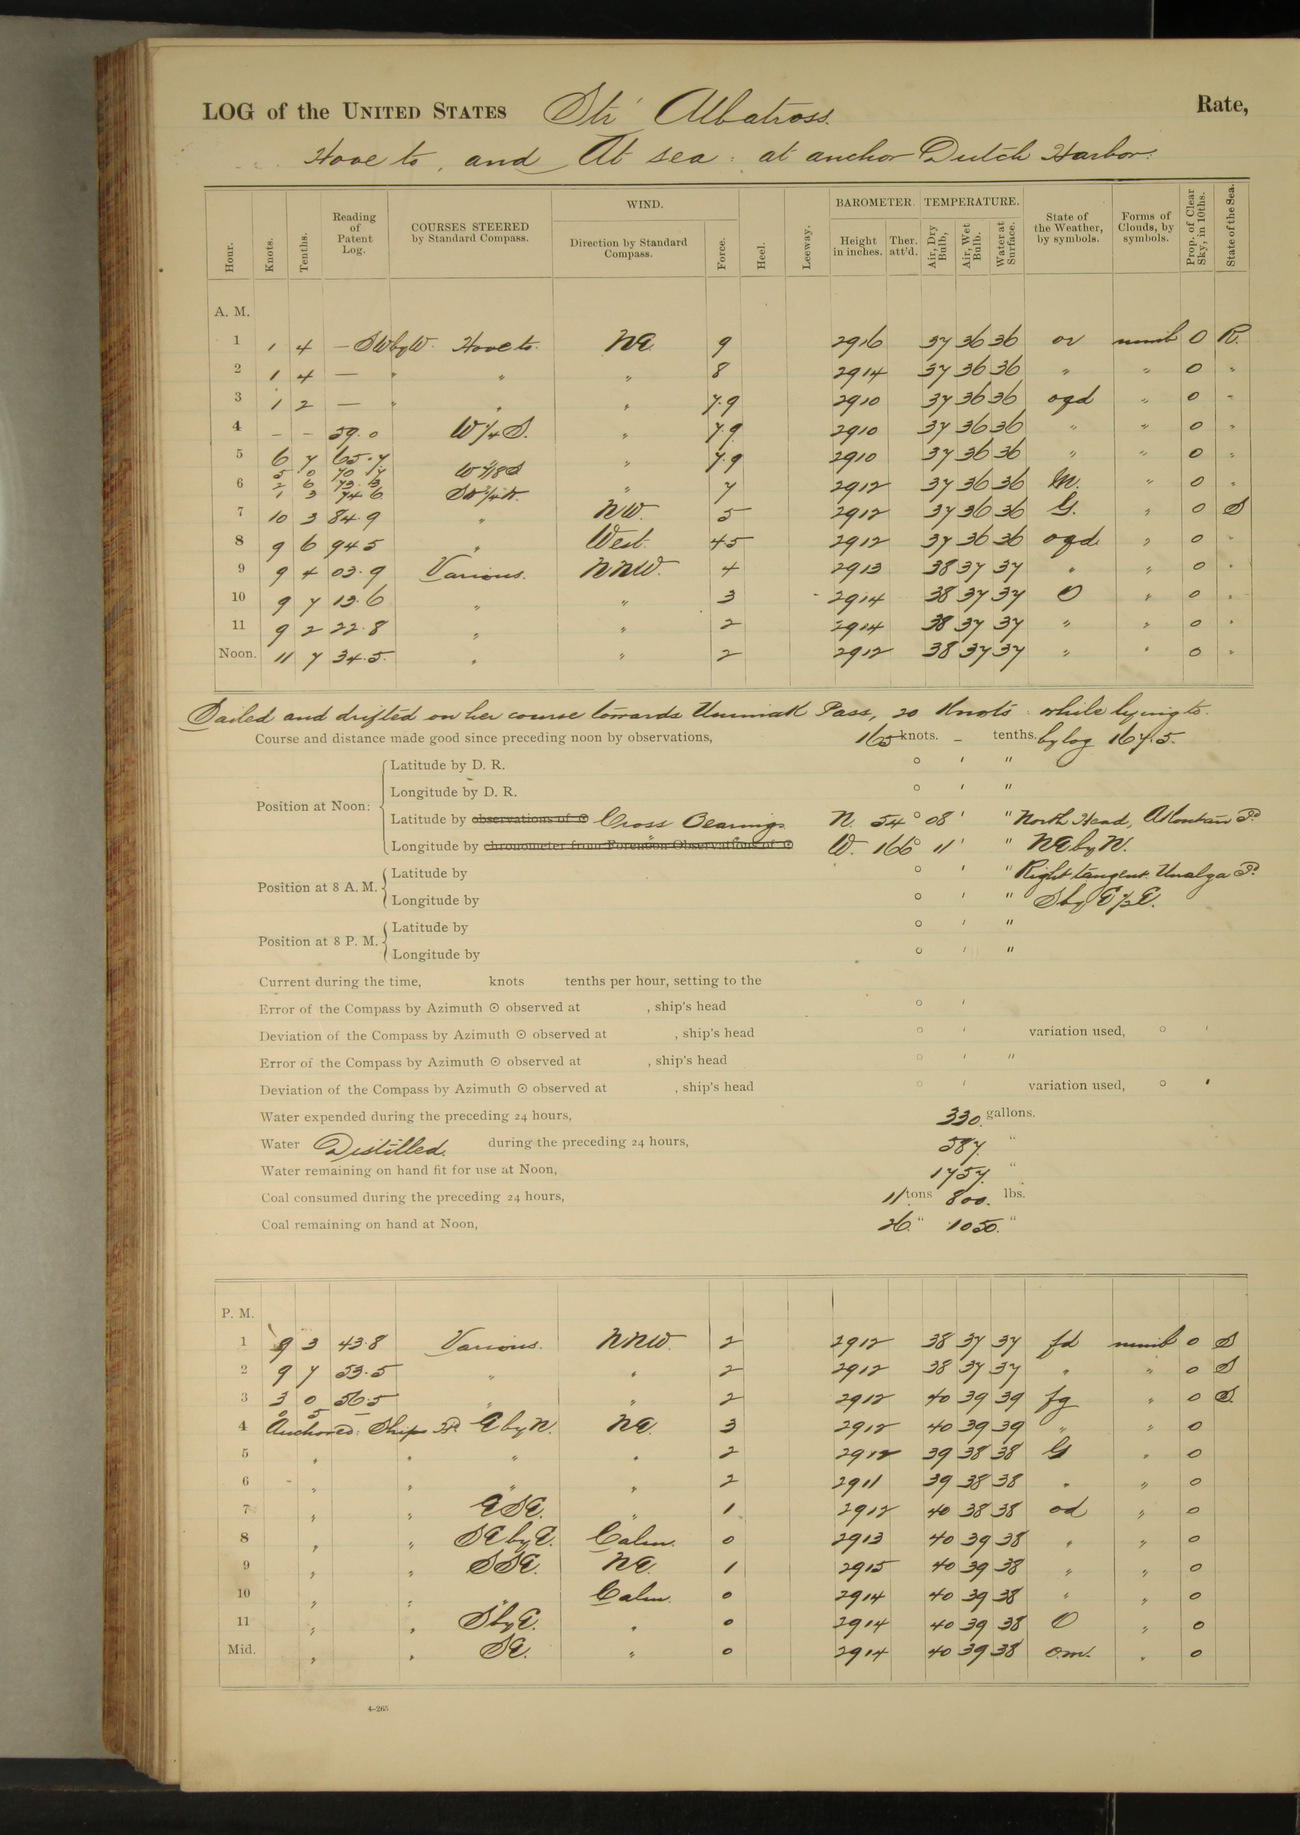 LOG of the UNITED STATES Str Albatross. Rate,
Hove to, and At sea: at anchor Dutch Harbor.
Hour. Knots. Tenths. Reading of Patent Log. COURSES STEERED by Standard Compass. WIND. Direction by Standard Compass. Force. Heel. Leeway. BAROMETER. Height in inches. Ther. att'd. TEMPERATURE. Air, Dry Bulb. Air, Wet Bulb. Water at Surface. State of the Weather, by symbols. Forms of Clouds, by symbols. Prop. of Clear Sky, in 10ths. State of the Sea.
A. M.
1 1 4 — SW by W. Hove to. NE. 9 2916 37 36 36 or nimb 0 R.
2 1 4 — " " " 8 2914 37 36 36 " " 0 "
3 1 2 — " " " 7.9 2910 37 36 36 oqd " 0 "
4 — — 59.0 W 1/4 S. " 7.9 2910 37 36 36 " " 0 "
5 6 7 65.7 " 7.9 2910 37 36 36 " " 0 "
5 0 70 7 W 7/8 S
6 2 6 73.3 " 7 2912 37 36 36 M. " 0 "
1 3 74 6
7 10 3 84.9 " NW. 5 2912 37 36 36 G. " 0 S
8 9 6 94 5 " West. 4 5 2912 37 36 36 oqd. " 0 "
9 9 4 03.9 Various. NNW. 4 2913 38 37 37 " " 0 "
10 9 7 13.6 " " 3 2914 38 37 37 O " 0 "
11 9 2 22.8 " " 2 2914 38 37 37 " " 0 "
Noon. 11 7 34.5. " " 2 2912 38 37 37 " " 0 "
Sailed and drifted on her course towards Unimak Pass, 20 Knots while lying to.
Course and distance made good since preceding noon by observations, 165 knots. – tenths. by log 167.5.
Position at Noon:
Latitude by D. R. ° ' "
Longitude by D. R. ° ' "
Latitude by observations of ☉ Cross Bearings N. 54° 08' " North Head, Akoutan Id
Longitude by chronometer from Forenoon Observations of ☉ " W. 166° 11' " NE by N.
Position at 8 A. M.
Latitude by ° ' " Right tangent Unalga Id
Longitude by ° ' " S by E 1/2 E.
Position at 8 P. M.
Latitude by ° ' "
Longitude by ° ' "
Current during the time, knots tenths per hour, setting to the
Error of the Compass by Azimuth ☉ observed at , ship's head ° '
Deviation of the Compass by Azimuth ☉ observed at , ship's head ° ' variation used, ° '
Error of the Compass by Azimuth ☉ observed at , ship's head ° ' "
Deviation of the Compass by Azimuth ☉ observed at , ship's head ° ' variation used, ° '
Water expended during the preceding 24 hours, 330 gallons.
Water Distilled. during the preceding 24 hours, 587. "
Water remaining on hand fit for use at Noon, 1757. "
Coal consumed during the preceding 24 hours, 11 tons 800. lbs.
Coal remaining on hand at Noon, 26. " 1050. "
P. M.
1 9 3 43.8 Various. NNW. 2 2912 38 37 37 fd nimb 0 S
2 9 7 53.5 " " 2 2912 38 37 37 " " 0 S
3 3 0 56.5 " " 2 2912 40 39 39 fg " 0 S
0 5 —
4 Anchored: Ships Hd. E by N. NE. 3 2912 40 39 39 " " 0
5 " " " " 2 2912 39 38 38 G " 0
6 " " " " 2 2911 39 38 38 " " 0
7 " " ESE. " 1 2912 40 38 38 od " 0
8 " " SE by E. Calm. 0 2913 40 39 38 " " 0
9 " " SSE. NE. 1 2915 40 39 38 " " 0
10 " " " Calm. 0 2914 40 39 38 " " 0
11 " " S by E. " 0 2914 40 39 38 O " 0
Mid. " " SE. " 0 2914 40 39 38 o.m. " 0
4-265